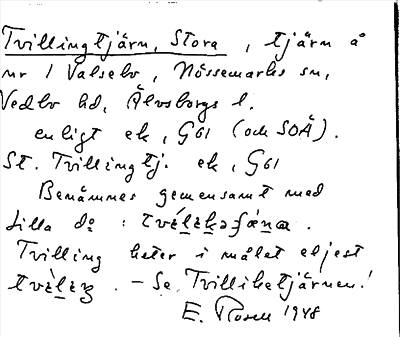 Tvillingtjärn, Stora, tjärn å
nr 1 Valselv, Nössemarks sn,
Vedbo hd, Älvsborgs l.
enligt ek, G61 (och SOÄ).
St. Tvillingtj. ek, G61
Benämnes gemensamt med
Lilla do :
Tvilling heter i målet eljest
— Se Tvilliketjärnen!
E. Rosell 1948